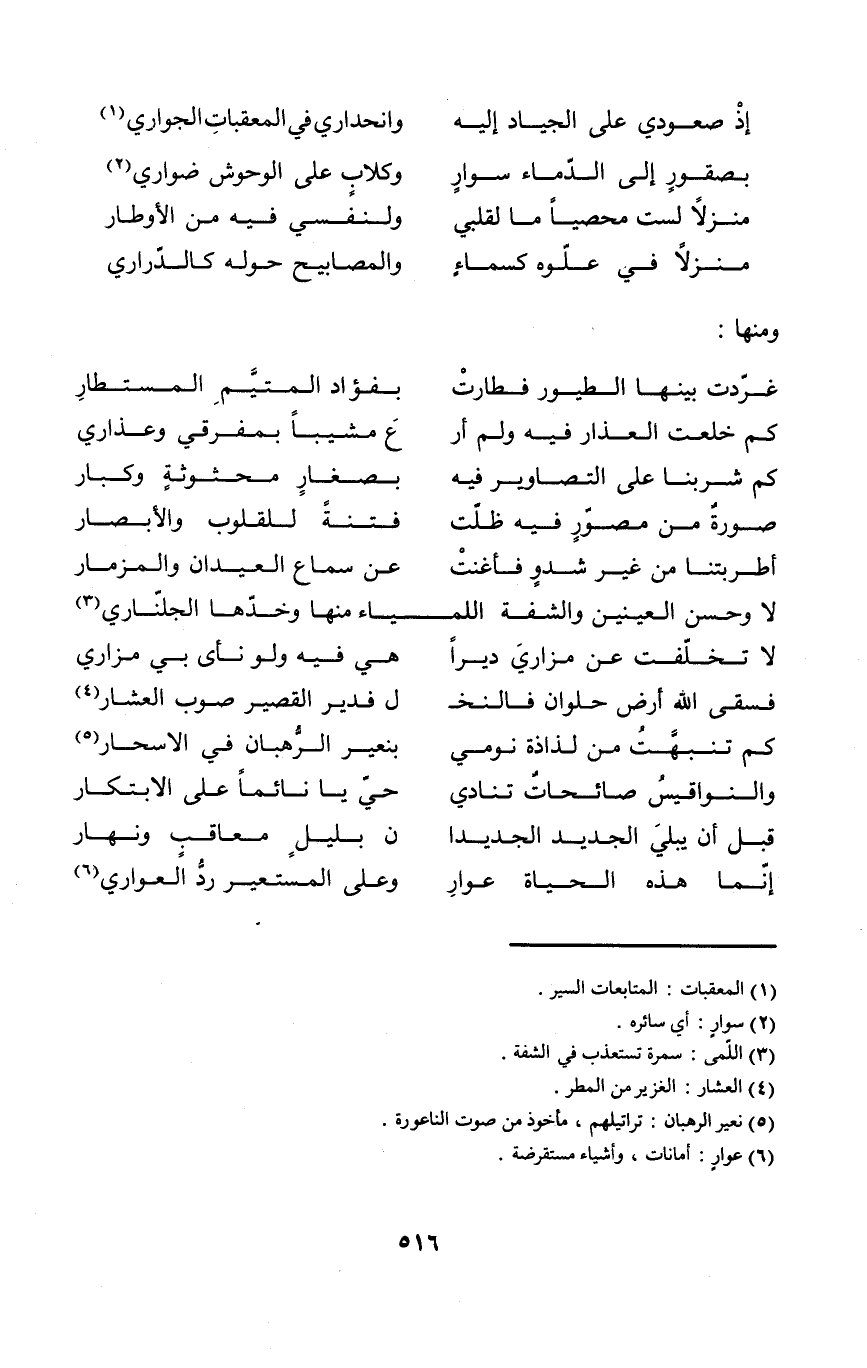 إذْ صعودي على الجياد إليه وانحداري في المعقباتِ الجواري(١)
بصقورٍ إلى الدّماء سوارٍ وكلابٍ على الوحوش ضواري(٢)
منزلاً لست محصياً ما لقلبي ولنفسي فيه من الأوطار
منزلاً في علّوه كسماءٍ والمصابيح حوله كالدّراري
ومنها :
غرّدت بينها الطيور فطارتْ بفؤاد المتيَّمِ المستطارِ
كم خلعت العذار فيه ولم أر عَ مشيباً بمفرقي وعذاري
كم شربنا على التصاوير فيه بصغارٍ محثوثةٍ وكبار
صورةٌ من مصوّرٍ فيه ظلّت فتنةً للقلوب والأبصار
أطربتنا من غير شدوٍ فأغنتْ عن سماع العيدان والمزمار
لا وحسن العينين والشفة اللمياء منها وخدّها الجلنّاري(٣)
لا تخلّفت عن مزاريَ ديراً هي فيه ولو نأى بي مزاري
فسقى الله أرض حلوان فالنخـ ل فدير القصير صوب العشار(٤)
كم تنبهَّتُ من لذاذة نومي بنعير الرُّهبان في الاسحار(٥)
والنواقيسُ صائحاتٌ تنادي حيّ يا نائماً على الابتكار
قبل أن يبليَ الجديد الجديدا ن بليلٍ معاقبٍ ونهار
إنّما هذه الحياة عوارِ وعلى المستعير ردُّ العواري(٦)
(١) المعقبات : المتابعات السير .
(٢) سوارٍ : أي سائره .
(٣) اللّمى : سمرة تستعذب في الشفة .
(٤) العشار : الغزير من المطر .
(٥) نعير الرهبان : تراتيلهم ، مأخوذ من صوت الناعورة .
(٦) عوارٍ : أمانات ، وأشياء مستقرضة .
٥١٦